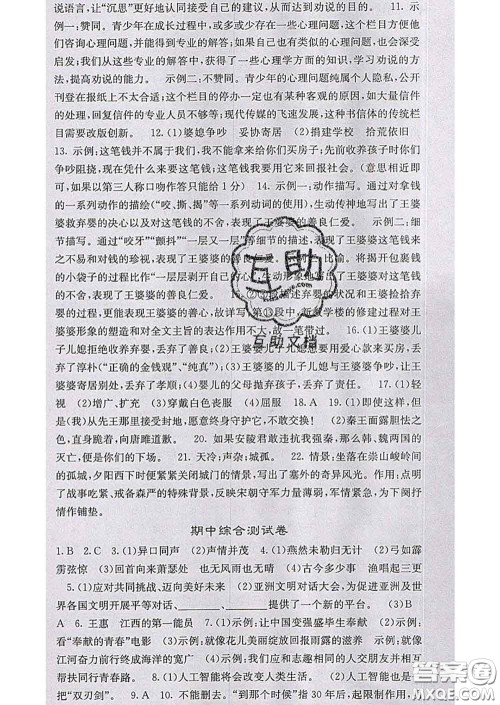 说语言,让“沉思”更好地认同接受自己的建议,从而达到劝说的目的。　11. 示
例一:赞同。青少年在成长过程中,或多或少会存在一些心理问题,这个栏目方便他
们咨询心理问题,并能得到专业的解答;如果自己也有类似的心理问题,也容易受到
启发;我们从这些专业的解答中,获得了一些心理学方面的知识,学习劝说的方法,
提高劝说的能力。　示例二:不赞同。青少年的心理问题纯属个人隐私,公开
刊登在报纸上不太合适;这个栏目的停办一定也有某种客观的原因,如大量信件的
处理,回复信件的人力不够等;现代传媒的飞速发展,这种以书信为媒体的传统栏
目需要改版创新。　12.(1)婆媳争吵　妥协寄居　(2)捐建学校　拾荒依旧
13. 示例:这笔钱并不属于我们,我不能拿来给你们买房子;先前收养孩子时你们
争吵阻挠,现在凭什么来要这笔钱?我要用它来回报社会。(意思相近即
可,如果以第三人称口吻作答只能给 1 分)　14. 示例一:动作描写。通过对拿钱
的一系列动作的描绘(“咬、撕、揭”等一系列动词的使用),生动传神地写出了王
婆婆救济弃婴的决心以及对这笔钱的不舍,表现了王婆婆的善良仁爱。　示例二:细
节描写。通过“咬牙”“颤抖”“一层又一层”等细节的描写,表现了王婆婆这笔钱来
之不易和对钱的珍视与不舍,表现了王婆婆的善良仁爱。　示例三:比喻。将揭开包裹钱
的小袋子的过程比作“一层层剥开自己的心”,生动形象地写出了王婆婆对这笔钱的
不舍,表现了王婆婆的善良仁爱。　15.
婴的过程,更能表现王婆婆的善良、慈悲心,故详写,第⑬段中,新教学楼的修建过程对王
婆婆形象的塑造和对全文主旨的表达作用不大,故一笔带过。　16.(1)王婆婆儿
子儿媳拒绝收养弃婴,丢弃了善良;(2)王婆婆儿子儿媳要用爱心款来买房子,丢
弃了淳朴(“正确的金钱观”“纯真”);(3)王婆婆的儿子儿媳与王婆婆争吵,让王婆
婆离家寄居,丢弃了孝顺;(4)婴儿的父母抛弃孩子,丢弃了责任。　17.(1)轻
视　(2)增广、扩充　(3)穿戴白色丧服　(4)屈服　18. A　19.(1)示例:我从
先王那里接受了封地,愿意终身守护它,不敢交换!　(2)示例:秦王面露胆怯之
色,直身跪着,向唐雎道歉。　20. 如果安陵君敢违抗我强秦,那么,韩、魏两国的灭
亡,便是你们的下场。　21. 天冷;声杂;城孤。　22. 示例:描绘了坐落在崇山峻岭间
的孤城,夕阳西下时便紧紧关闭城门的情景,写出了塞外的奇异风光。作用:点明
了战事吃紧、戒备森严的特殊背景,反映宋朝守军力量薄弱,军情紧急,为下阕抒
情作铺垫。
期中综合测试卷
1. B　2. C　3.(1)异口同声　(2)声情并茂　4.(1)燕然未勒归无计　(2)弓如霹
雳弦惊　(3)回首向来萧瑟处　也无风雨也无晴　(4)古今多少事　渔唱起三更
5.(1)应对共同挑战、迈向美好未来　(2)亚洲文明对话大会,为促进亚洲及世
界各国文明开展平等对话、______、______提供了一个新的平台。　(3)B
A　6. 王惠　江西的第一能员　7.(1)示例:让中国变强盛毕生奉献　(2)示例:
看“奉献的青春”电影　(3)示例:就像花儿美丽绽放回报雨露的滋养　就像
江河奋力前行终成海洋的宽广　(4)示例:我们应和志趣相同的人交朋友并相互
扶持共行青春路。　8.(1)人工智能将改变人类生活。　(2)人工智能也是一
把“双刃剑”。　9. A　10. 不能删去。“到那个时候”指 30 年后,起限制作用,
互助
互助文档
答案圈
MXQE.COM